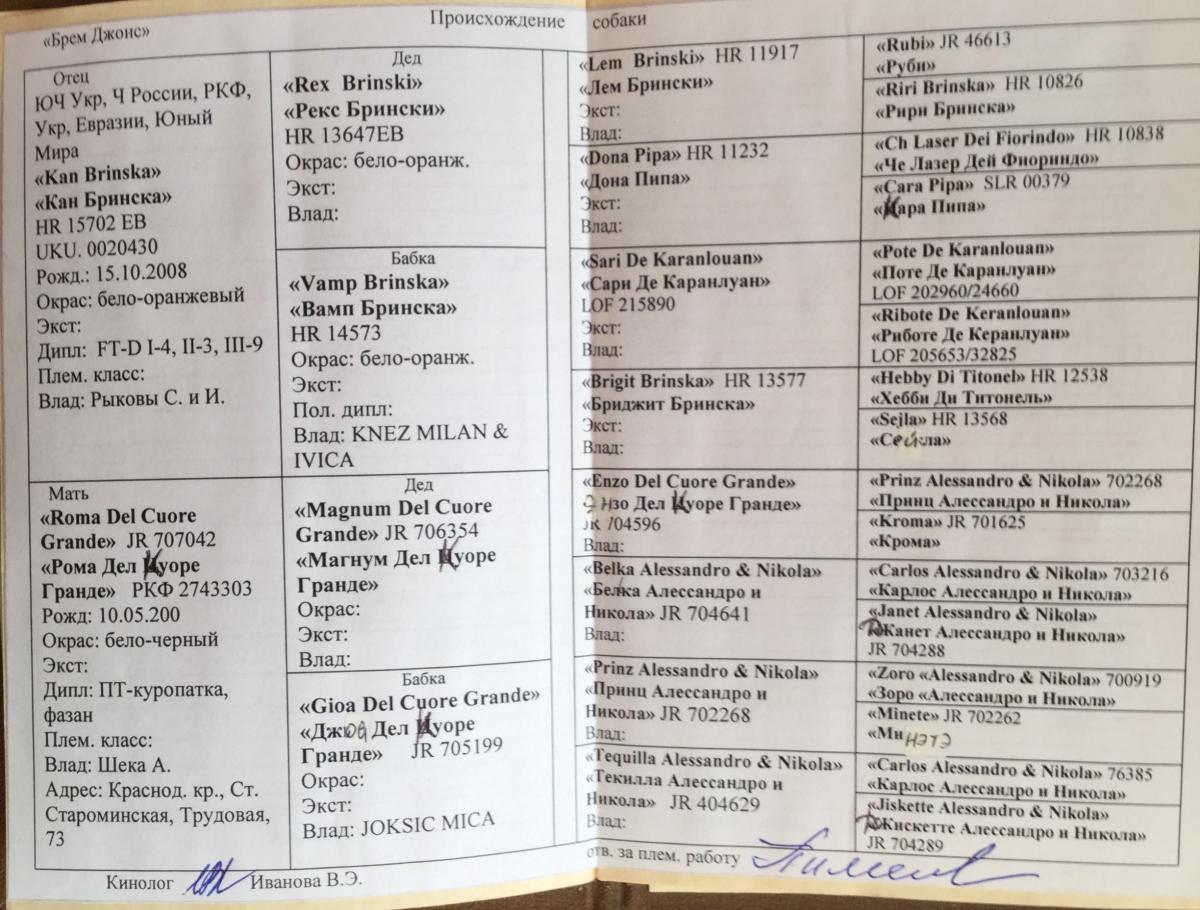 «Брем Джонс»
Происхождение собаки
Отец
ЮЧ Укр, Ч России, РКФ,
Укр, Евразии, Юный
Мира
«Kan Brinska»
«Кан Бринска»
HR 15702 EB
UKU. 0020430
Рожд.: 15.10.2008
Окрас: бело-оранжевый
Экст:
Дипл: FT-D I-4, II-3, III-9
Плем. класс:
Влад: Рыковы С. и И.
Мать
«Roma Del Cuore
Grande» JR 707042
«Рома Дел Куоре
Гранде» РКФ 2743303
Рожд: 10.05.200
Окрас: бело-черный
Экст:
Дипл: ПТ-куропатка,
фазан
Плем. класс:
Влад: Шека А.
Адрес: Краснод. кр., Ст.
Староминская, Трудовая,
73
Дед
«Rex Brinski»
«Рекс Брински»
HR 13647EB
Окрас: бело-оранж.
Экст:
Влад:
Бабка
«Vamp Brinska»
«Вамп Бринска»
HR 14573
Окрас: бело-оранж.
Экст:
Пол. дипл:
Влад: KNEZ MILAN &
IVICA
Дед
«Magnum Del Cuore
Grande» JR 706354
«Магнум Дел Куоре
Гранде»
Окрас:
Экст:
Влад:
Бабка
«Gioa Del Cuore Grande»
«Джоа Дел Куоре
Гранде» JR 705199
Окрас:
Экст:
Влад: JOKSIC MICA
«Lem Brinski» HR 11917
«Лем Брински»
Экст:
Влад:
«Dona Pipa» HR 11232
«Дона Пипа»
Экст:
Влад:
«Sari De Karanlouan»
«Сари Де Каранлуан»
LOF 215890
Экст:
Влад:
«Brigit Brinska» HR 13577
«Бриджит Бринска»
Экст:
Влад:
«Enzo Del Cuore Grande»
Энзо Дел Куоре Гранде»
JR 704596
Влад:
«Belka Alessandro & Nikola»
«Белка Алессандро и
Никола» JR 704641
Влад:
«Prinz Alessandro & Nikola»
«Принц Алессандро и
Никола» JR 702268
Влад:
«Tequilla Alessandro & Nikola»
«Текилла Алессандро и
Никола» JR 404629
Влад:
«Rubi» JR 46613
«Руби»
«Riri Brinska» HR 10826
«Рири Бринска»
«Ch Laser Dei Fiorindo» HR 10838
«Че Лазер Дей Фиориндо»
«Cara Pipa» SLR 00379
«Кара Пипа»
«Pote De Karanlouan»
«Поте Де Каранлуан»
LOF 202960/24660
«Ribote De Keranlouan»
«Риботе Де Керанлуан»
LOF 205653/32825
«Hebby Di Titonel» HR 12538
«Хебби Ди Титонель»
«Sejla» HR 13568
«Сейла»
«Prinz Alessandro & Nikola» 702268
«Принц Алессандро и Никола»
«Kroma» JR 701625
«Крома»
«Carlos Alessandro & Nikola» 703216
«Карлос Алессандро и Никола»
«Janet Alessandro & Nikola»
Жанет Алессандро и Никола»
JR 704288
«Zoro «Alessandro & Nikola» 700919
«Зоро «Алессандро и Никола»
«Minete» JR 702262
«Минэтэ
«Carlos Alessandro & Nikola» 76385
«Карлос Алессандро и Никола»
«Jiskette Alessandro & Nikola»
Жискетте Алессандро и Никола»
JR 704289
Кинолог Иванова В.Э.
отв. за плем. работу